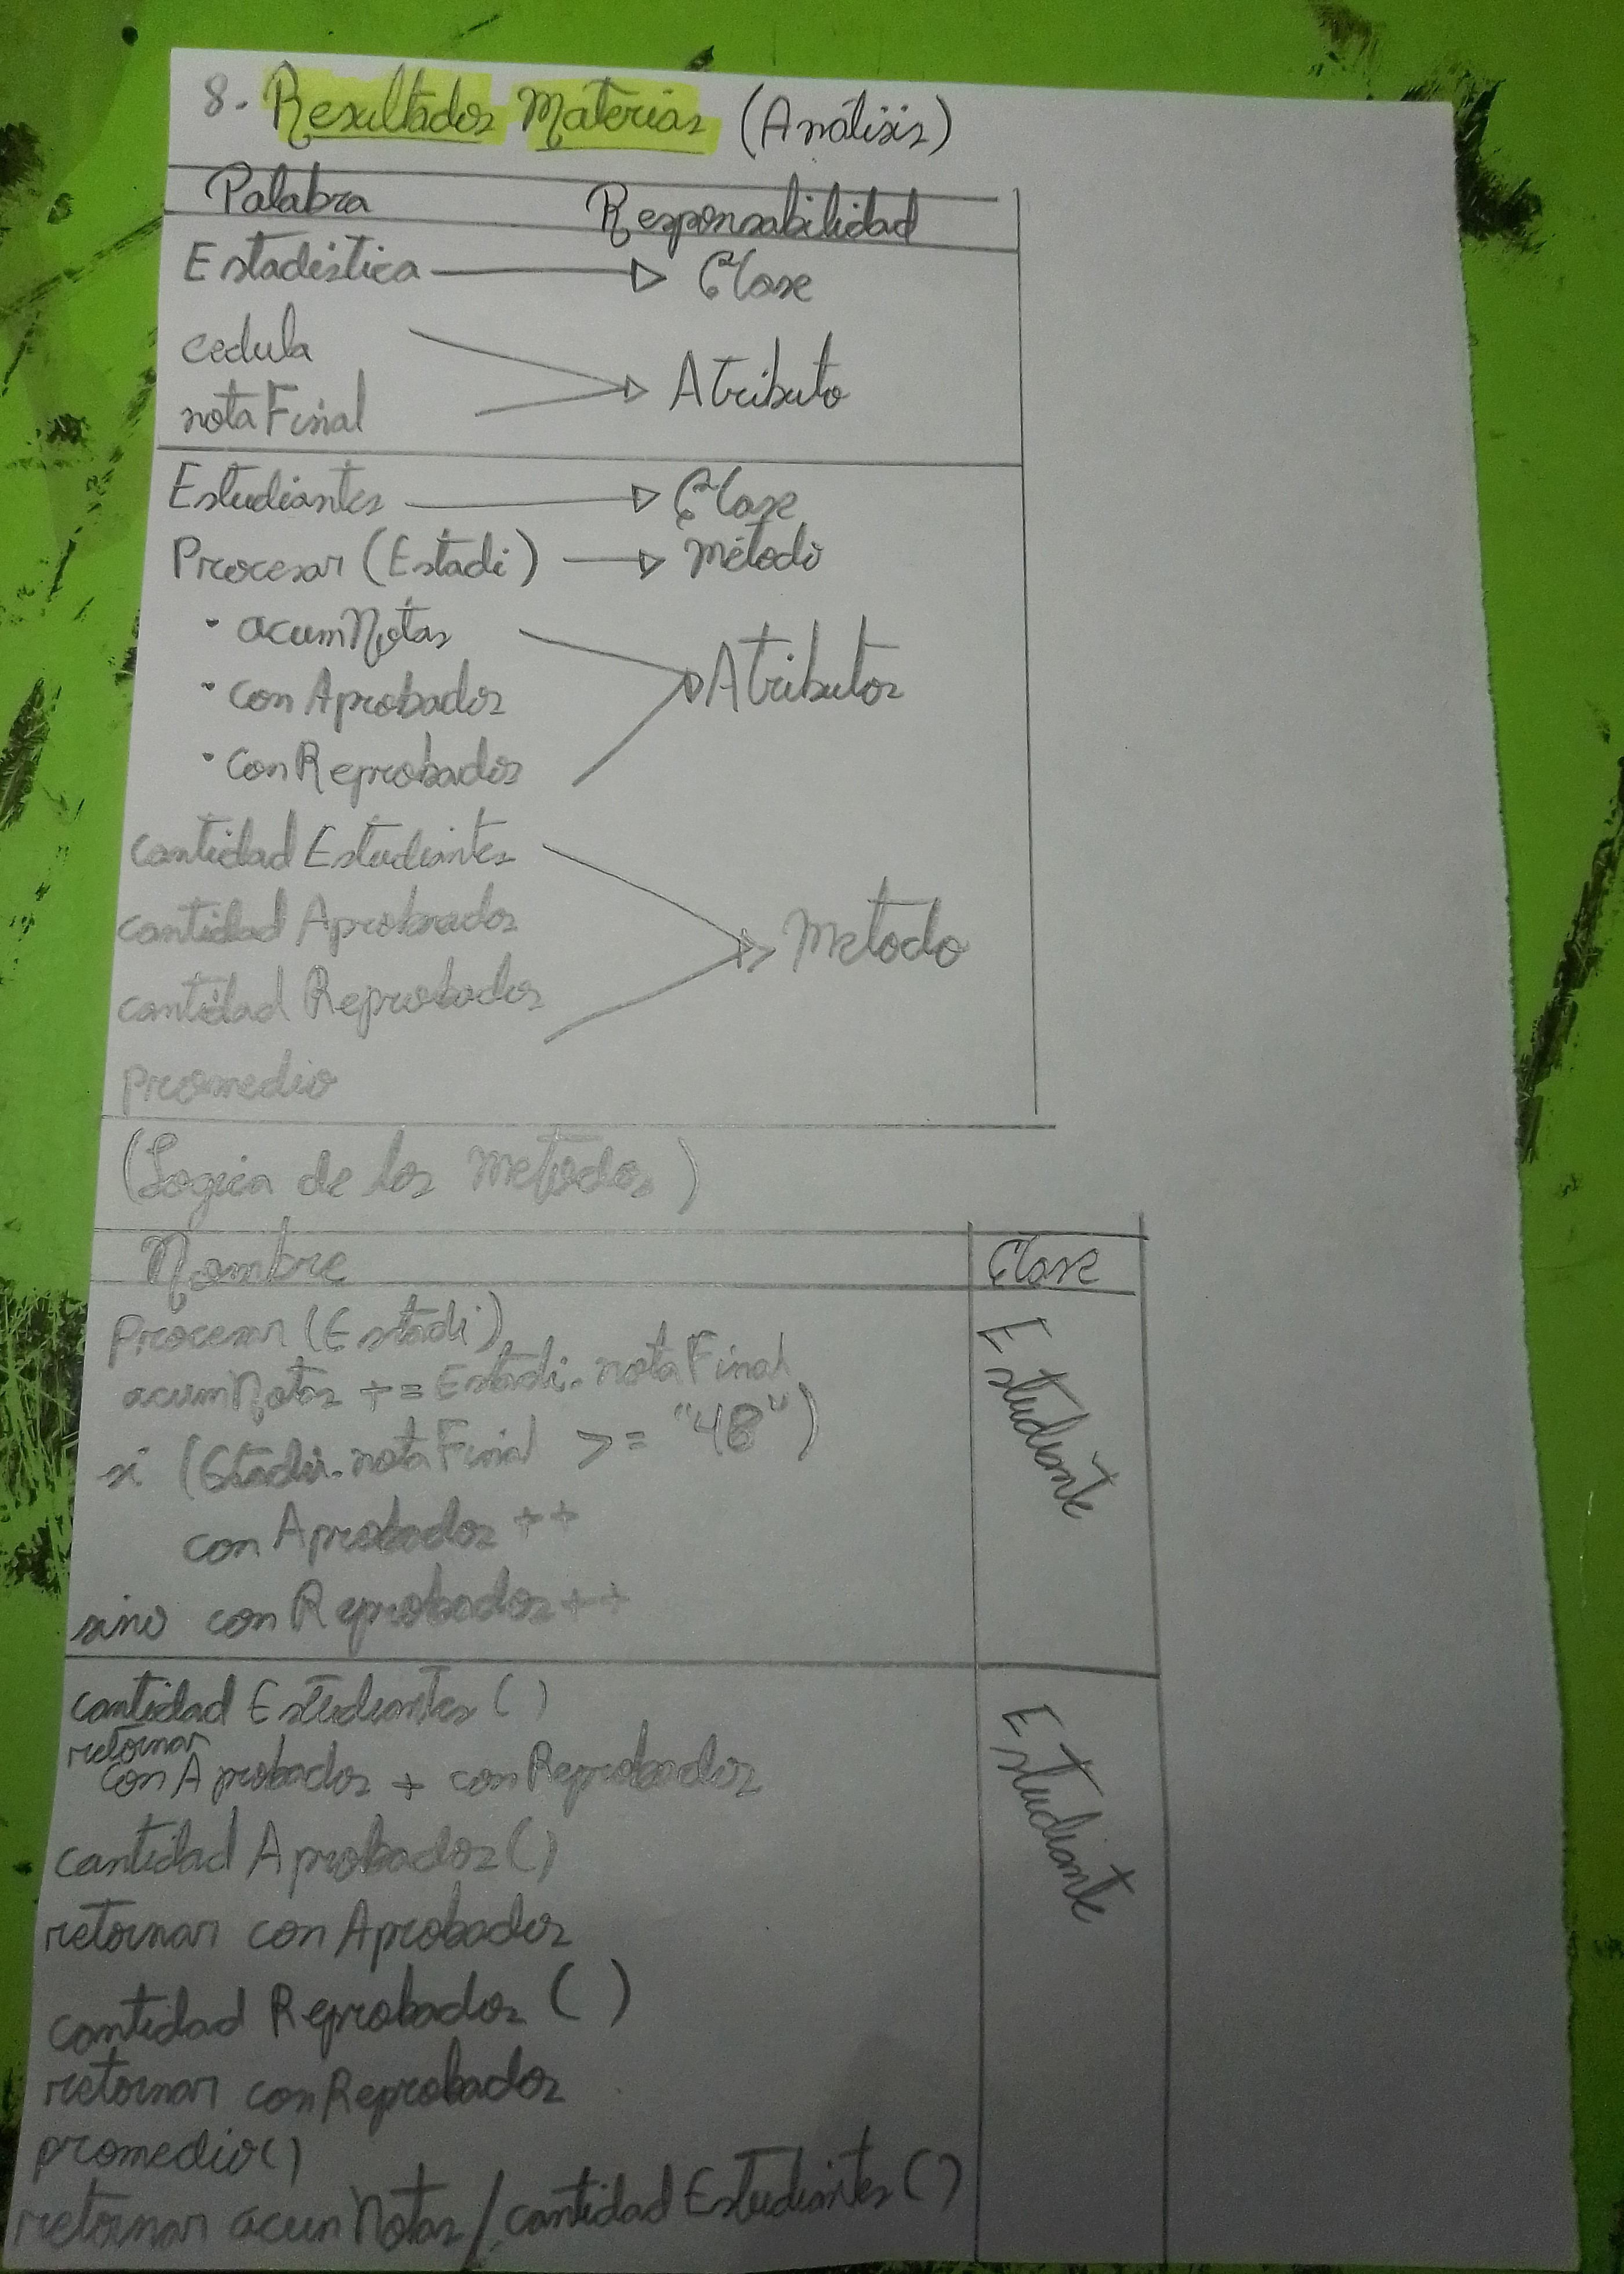 8. Resultados Materias (Análisis)
Palabra Responsabilidad
Estadística Clase
cedula
notaFinal Atributo
Estudiantes Clase
Procesar (Estadi) Método
• acumNotas
• conAprobados Atributos
• conReprobados
cantidad Estudiantes
cantidad Aprobados Metodo
cantidad Reprobados
promedio
(Logica de los Metodos)
Nombre Clase
Procesar (Estadi) Estudiante
acumNotas += Estadi.notaFinal
si (Estadi.notaFinal >= "48")
conAprobados ++
sino conReprobados ++
cantidad Estudiantes () Estudiante
retornar
conAprobados + conReprobados
cantidad Aprobados ()
retornar conAprobados
cantidad Reprobados ()
retornar conReprobados
promedio()
retornar acumNotas / cantidad Estudiantes ()